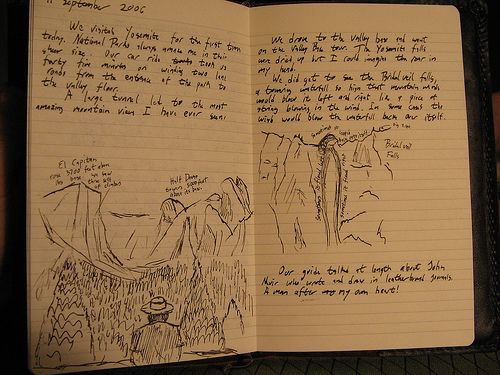 11 September 2006
We visited Yosemite for the first time
today. National Parks always amaze me in their
sheer size. Our car ride took us
forty five minutes on winding two lane
roads from the entrance of the park to
the valley floor.
A large tunnel led to the most
amazing mountain view I have ever seen!
El Capitan
rises 3700 feet above
its base. we saw
three sets
of climbers
Half Dome
towers 5000 feet
above its base.
We drove to the valley box and went
on the Valley Bus tour. The Yosemite falls
were dried up but I could imagine the roar in
my head.
We did get to see the Bridal veil falls,
a towering waterfall so high that mountain winds
would blow it left and right like a piece of
string blowing in the wind. In some cases the
wind would blow the waterfall back over itself.
Sometimes it
Bridal Veil
Falls
sometimes it flowed
sometimes it flowed
Our guide talked at length about John
Muir who wrote and drew in leatherbound journals.
A man after my own heart!